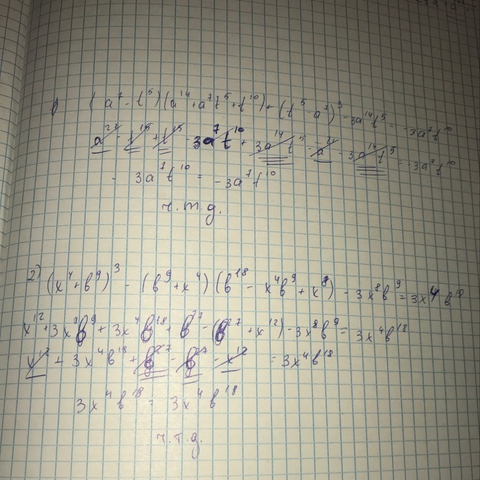 1) (a⁷ - t⁵)(a¹⁴ + a⁷t⁵ + t¹⁰) + (t⁵ - a⁷)³ - 3a¹⁴t⁵ = -3a⁷t¹⁰
a²¹ - t¹⁵ + t¹⁵ - 3a⁷t¹⁰ + 3a¹⁴t⁵ - a²¹ - 3a¹⁴t⁵ = -3a⁷t¹⁰
- 3a⁷t¹⁰ = -3a⁷t¹⁰
ч.т.д.
2) (x⁴ + в⁹)³ - (в⁹ + x⁴)(в¹⁸ - x⁴в⁹ + x⁸) - 3x⁸в⁹ = 3x⁴в¹⁸
x¹² + 3x⁸в⁹ + 3x⁴в¹⁸ + в²⁷ - (в²⁷ + x¹²) - 3x⁸в⁹ = 3x⁴в¹⁸
x¹² + 3x⁴в¹⁸ + в²⁷ - в²⁷ - x¹² = 3x⁴в¹⁸
3x⁴в¹⁸ = 3x⁴в¹⁸
ч.т.д.